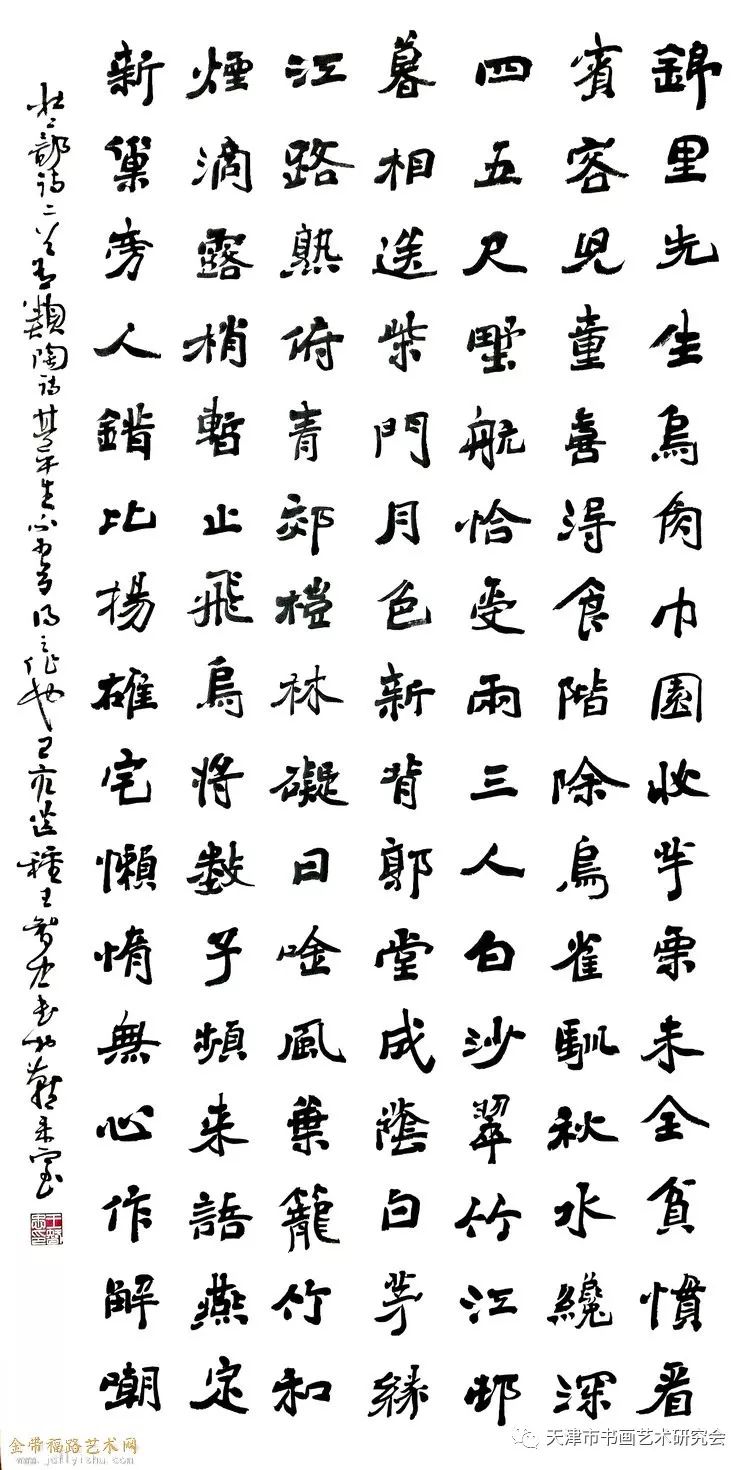 錦里先生烏角巾園收芋栗未全貧慣看
賓客兒童喜得食階除鳥雀馴秋水纔深
四五尺墅航恰受兩三人白沙翠竹江邨
暮相送柴門月色新背郭堂成蔭白茅緣
江路熟俯青郊榿林礙日吟風葉籠竹和
煙滴露梢暫止飛烏將數子頻来語燕定
新巢旁人錯比揚雄宅懶惰無心作解嘲
杜工部詩二首有類陶詩其平生不可多得之作也己亥芒種王智
金带福路艺术网
天津市书画艺术研究会